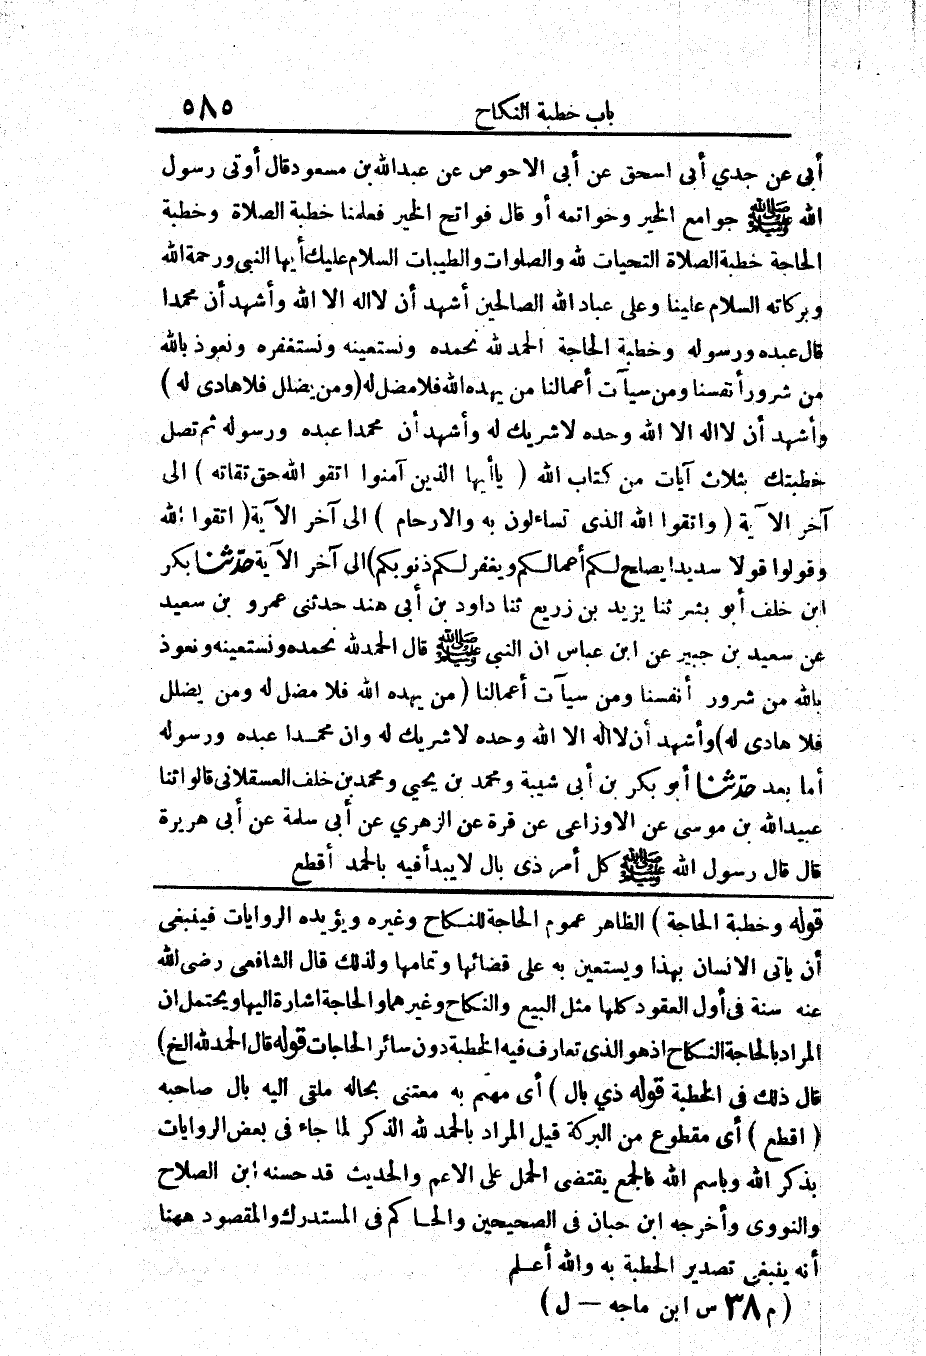 باب خطبة النكاح ٥٨٥
أبي عن جدي أبى اسحق عن أبى الاحوص عن عبدالله بن مسعود قال أوتى رسول
الله ﷺ جوامع الخير وخواتمه أو قال فواتح الخير فعلمنا خطبة الصلاة وخطبة
الحاجة خطبة الصلاة التحيات لله والصلوات والطيبات السلام عليك أيها النبي ورحمة الله
وبركاته السلام علينا وعلى عباد الله الصالحين أشهد أن لااله الا الله وأشهد أن محمدا
قال عبده ورسوله وخطبة الحاجة الحمد لله نحمده ونستعينه ونستغفره ونعوذ بالله
من شرور أنفسنا ومن سيآت أعمالنا من يهده الله فلا مضل له (ومن يضلل فلا هادى له )
وأشهد أن لااله الا الله وحده لاشريك له وأشهد أن محمدا عبده ورسوله ثم تصل
خطبتك بثلاث آيات من كتاب الله ( ياأيها الذين آمنوا اتقو الله حق تقاته ) الى
آخر الآية ( واتقوا الله الذى تساءلون به والارحام ) الى آخر الآية ( اتقوا الله
وقولوا قولا سديدا يصلح لكم أعمالكم ويغفر لكم ذنوبكم) الى آخر الآية حدثنا بكر
ابن خلف أبو بشر ثنا يزيد بن زريع ثنا داود بن أبى هند حدثنى عمرو بن سعيد
عن سعيد بن جبير عن ابن عباس ان النبي ﷺ قال الحمدلله نحمده ونستعينه ونعوذ
بالله من شرور أنفسنا ومن سيآت أعمالنا ( من يهده الله فلا مضل له ومن يضلل
فلا هادى له) وأشهد أن لااله الا الله وحده لاشريك له وان محمدا عبده ورسوله
أما بعد حدثنا أبو بكر بن أبى شيبة ومحمد بن يحيي ومحمد بن خلف العسقلانى قالوا ثنا
عبيدالله بن موسى عن الاوزاعى عن قرة عن الزهري عن أبى سلمة عن أبى هريرة
قال قال رسول الله ﷺ كل أمر ذى بال لا يبدأ فيه بالحمد أقطع
قوله وخطبة الحاجة ) الظاهر عموم الحاجة للنكاح وغيره ويؤيده الروايات فينبغى
أن يأتى الانسان بهذا ويستعين به على قضائها وتمامها ولذلك قال الشافعى رضى الله
عنه سنة فى أول العقود كلها مثل البيع والنكاح وغيرهما والحاجة اشارة اليها ويحتمل ان
المراد بالحاجة النكاح اذ هو الذى تعارف فيه الخطبة دون سائر الحاجات قوله قال الحمدلله الخ)
قال ذلك فى الخطبة قوله ذي بال ) أى مهتم به معتنى بحاله ملقى اليه بال صاحبه
( اقطع ) أى مقطوع من البركة قيل المراد بالحمد لله الذكر لما جاء فى بعض الروايات
بذكر الله وباسم الله فالجمع يقتضى الحمل على الاعم والحديث قد حسنه ابن الصلاح
والنووى وأخرجه ابن حبان فى الصحيحين والحاكم فى المستدرك والمقصود ههنا
أنه ينبغى تصدير الخطبة به والله أعلم
( م ٣٨ س ابن ماجه — ل )